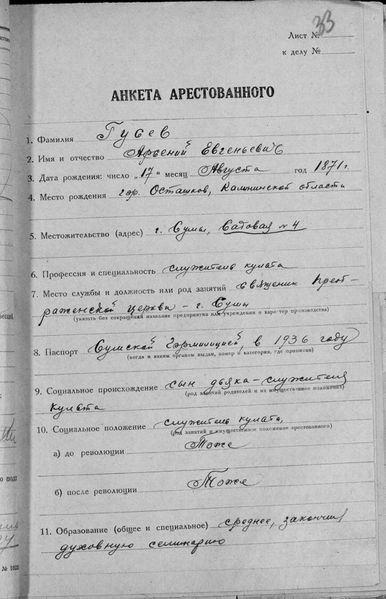 33
Лист №
к делу №
АНКЕТА АРЕСТОВАННОГО
1. Фамилия Гусев
2. Имя и отчество Арсений Евгеньевич
3. Дата рождения: число „17“ месяц Августа год 1871 г.
4. Место рождения гор. Осташков, Калининской области
5. Местожительство (адрес) г. Сумы, Садовая № 4
6. Профессия и специальность служитель культа
7. Место службы и должность или род занятий священник Преоб-
раженской церкви - г. Сумы
(указать без сокращений название предприятия или учреждения и характер производства)
8. Паспорт Сумской Гормилицией в 1936 году
(когда и каким органом выдан, номер и категория, где прописан)
9. Социальное происхождение сын дьяка - служителя
(род занятий родителей и их имущественное положение)
культа
10. Социальное положение служитель культа,
(род занятий и имущественное положение арестованного)
а) до революции Тоже
б) после революции Тоже
11. Образование (общее и специальное) среднее, закончил
духовную семинарию